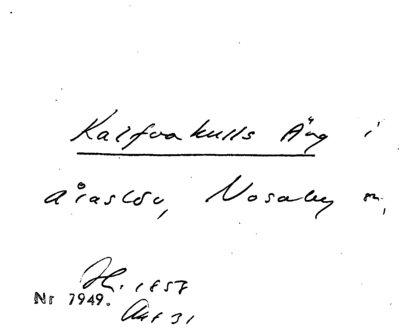 Kalfvakulls Äng i
Åraslöv, Nosaby sn,
H. 1857
Nr 7949.
Akt 31